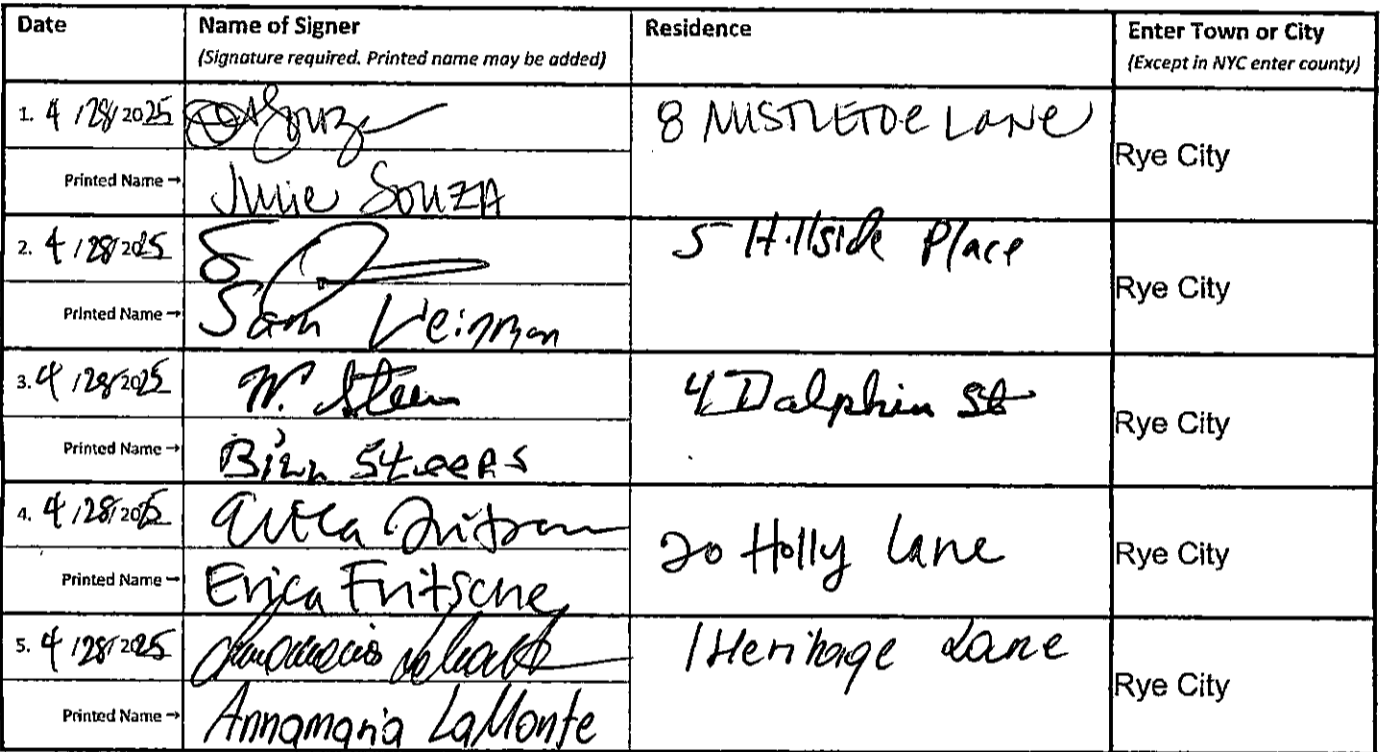 Date Name of Signer Residence Enter Town or City
(Signature required. Printed name may be added) (Except in NYC enter county)
1. 4/28/2025 Souza 8 MISTLETOE LANE Rye City
Printed Name → Julie SOUZA
2. 4/28/2025 5 Hillside Place Rye City
Printed Name → Sam Weinman
3. 4/28/2025 W. Steers 4 Dalphin St Rye City
Printed Name → Steers
4. 4/28/2025 Erica Fritsche 20 Holly Lane Rye City
Printed Name → Erica Fritsche
5. 4/28/2025 1 Heritage Lane Rye City
Printed Name → Annamaria LaMonte